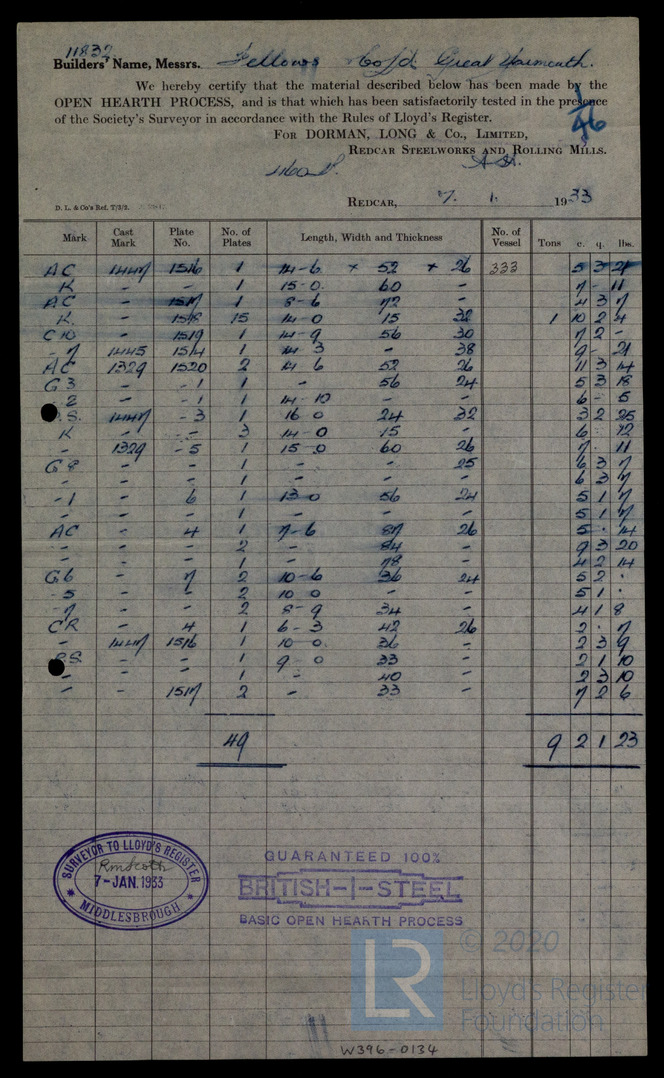 11832
Builders' Name, Messrs. Fellows & Co Ld. Great Yarmouth.
We hereby certify that the material described below has been made by the
OPEN HEARTH PROCESS, and is that which has been satisfactorily tested in the presence
of the Society's Surveyor in accordance with the Rules of Lloyd's Register.
FOR DORMAN, LONG & Co., LIMITED,
REDCAR STEELWORKS AND ROLLING MILLS.
D. L. & Co's Ref. 7/3/2.
REDCAR, 7. 1. 1933
Mark Cast Mark Plate No. No. of Plates Length, Width and Thickness No. of Vessel Tons c. q. lbs.
AC 1447 1516 1 14-6 + 52 + 26 333 5 3 21
K - - 1 15-0 60 - 7 - 11
AC - 1517 1 8-6 72 - 4 3 7
K. - 1518 15 14-0 15 32 1 10 2 4
C10 - 1519 1 14-9 56 30 7 2 -
-7 1445 1514 1 14 3 - 38 9 - 21
AC 1329 1520 2 14 6 52 26 11 3 14
G3 - -1 1 - 56 24 5 3 18
-2 - -1 1 14-10 - - 6 - 5
.S. 1447 -3 1 16 0 24 32 3 2 25
K - - 3 14-0 15 - 6 12
- 1329 -5 1 15 0 60 26 7 - 11
G8 - - 1 - - 25 6 3 7
- - - 1 - - - 6 3 7
-1 - 6 1 13 0 56 24 5 1 7
- - - 1 - - - 5 1 7
AC - 4 1 7-6 87 26 5 . 14
- - - 2 - 84 - 9 3 20
- - - 1 - 78 - 4 2 14
G6 - 7 2 10-6 36 24 5 2 .
-5 - - 2 10 0 - - 5 1 .
-7 - - 2 8-9 34 - 4 1 8
CR - 4 1 6-3 42 26 2 . 7
- 1447 1516 1 10 0 36 - 2 3 9
S. - - 1 9-0 33 - 2 1 10
- - - 1 - 40 - 2 3 10
- - 1517 2 - 33 - 7 2 6
49 9 2 1 23
SURVEYOR TO LLOYD'S REGISTER
7-JAN.1933
MIDDLESBROUGH
GUARANTEED 100%
BRITISH-I-STEEL
BASIC OPEN HEARTH PROCESS
LR
© 2020
Lloyd's Register
Foundation
W396-0134